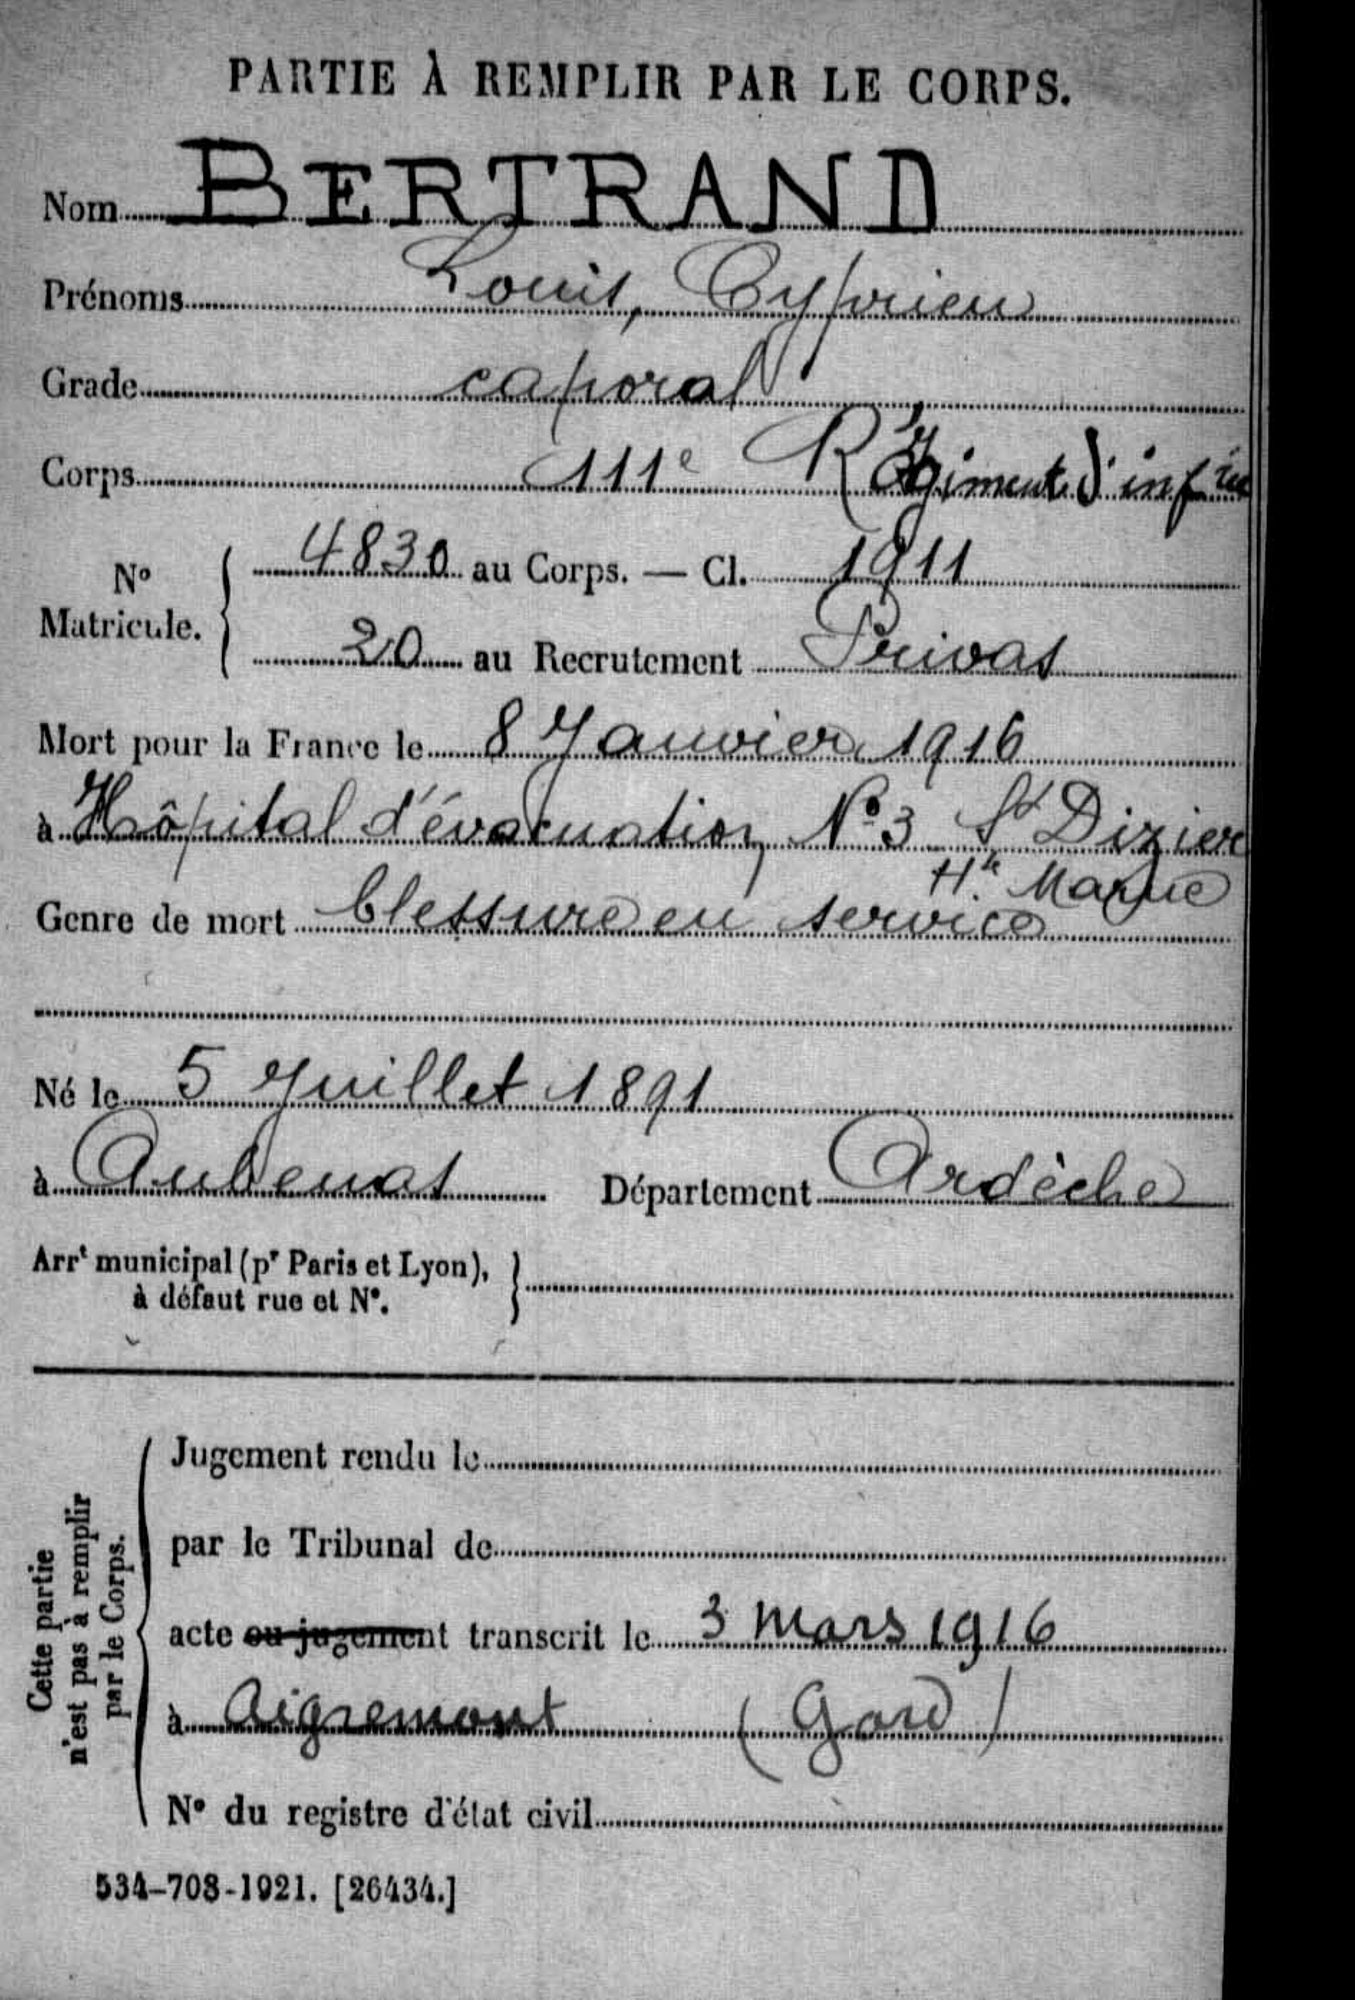 PARTIE À REMPLIR PAR LE CORPS.
Nom BERTRAND
Prénoms Louis, Cyprien
Grade caporal
Corps 111e Régiment d'inf rie
No Matricule. 4830 au Corps. — Cl. 1911
20 au Recrutement Privas
Mort pour la France le 8 Janvier 1916
à Hôpital d'évacuation No 3 St Dizier
Hte Marne
Genre de mort blessure en service
Né le 5 Juillet 1891
à Aubenas Département Ardèche
Arrt municipal (pr Paris et Lyon),
à défaut rue et No.
Cette partie
n'est pas à remplir
par le Corps.
Jugement rendu le
par le Tribunal de
acte ou jugement transcrit le 3 mars 1916
à Aigremont (Gard)
No du registre d'état civil
534-708-1921. [26434.]